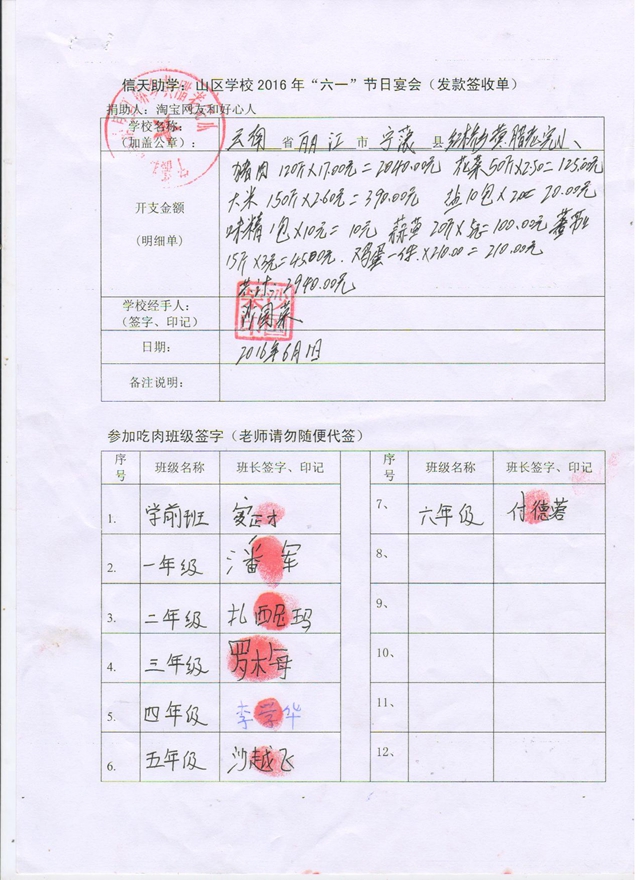 信天助学：山区学校2016年“六一”节日宴会（发款签收单）
捐助人：淘宝网友和好心人
学校名称：
（加盖公章）：
云南 省 丽江 市 宁蒗 县
开支金额
（明细单）
猪肉120斤×17.00元=2040.00元 花菜50斤×2.50=125.00元
大米150斤×2.60元=390.00元 盐10包×2元=20.00元
味精1包×10元=10元 20斤×5元=100.00元
15斤×3元=45.00元. 鸡蛋一件×210.00=210.00元
共计：2940.00元
学校经手人：
（签字、印记）
日期：
2016年6月1日
备注说明：
参加吃肉班级签字（老师请勿随便代签）
序号 班级名称 班长签字、印记 序号 班级名称 班长签字、印记
1. 学前班 7、 六年级 付德蓉
2. 一年级 潘军 8、
3. 二年级 扎西尼玛 9、
4. 三年级 罗木每 10、
5. 四年级 李学华 11、
6. 五年级 沙越飞 12、